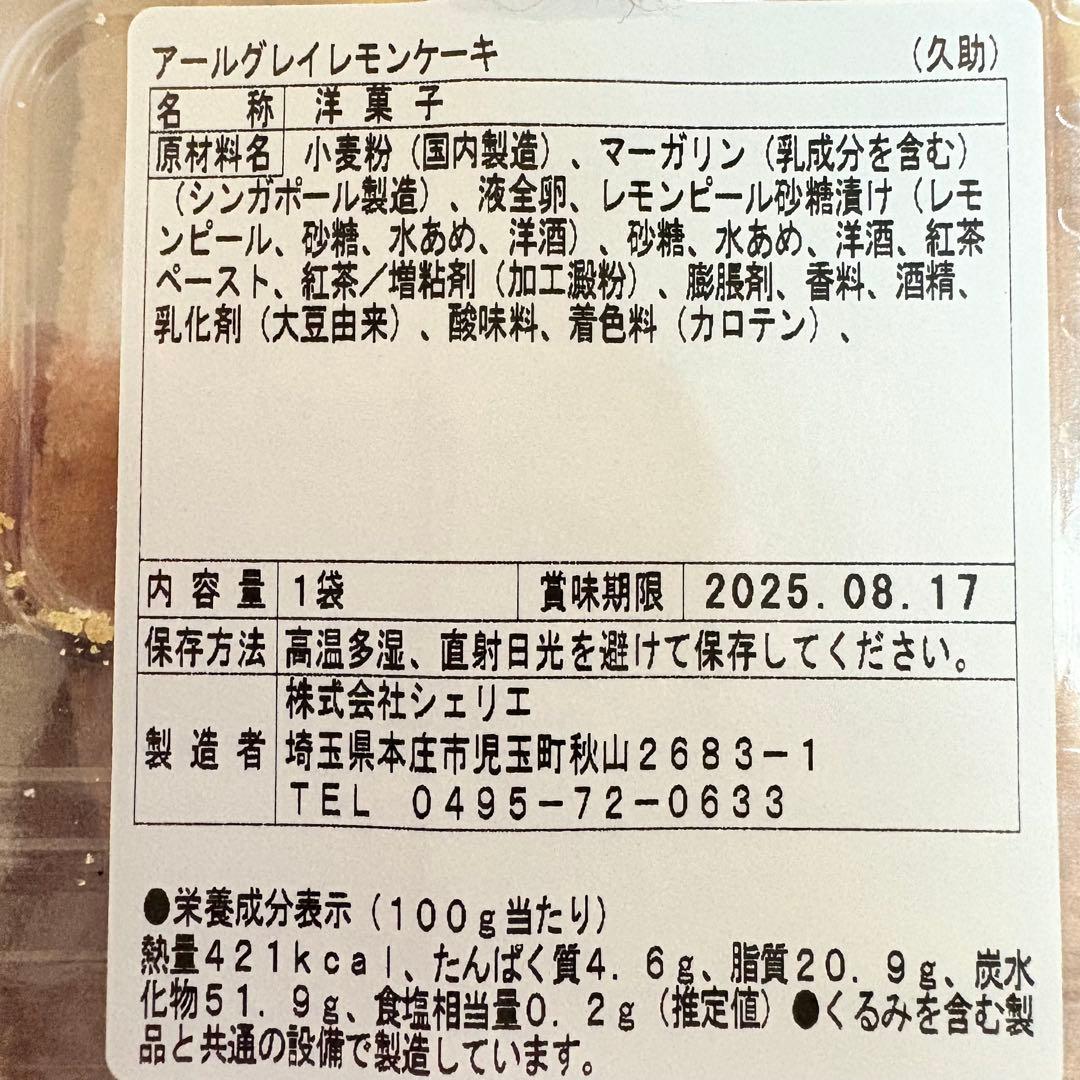 アールグレイレモンケーキ （久助）
名称 洋菓子
原材料名 小麦粉（国内製造）、マーガリン（乳成分を含む）
（シンガポール製造）、液全卵、レモンピール砂糖漬け（レモ
ンピール、砂糖、水あめ、洋酒）、砂糖、水あめ、洋酒、紅茶
ペースト、紅茶／増粘剤（加工澱粉）、膨脹剤、香料、酒精、
乳化剤（大豆由来）、酸味料、着色料（カロテン）、
内容量 1袋 賞味期限 2025.08.17
保存方法 高温多湿、直射日光を避けて保存してください。
株式会社シェリエ
製造者 埼玉県本庄市児玉町秋山２６８３－１
ＴＥＬ ０４９５－７２－０６３３
●栄養成分表示（１００ｇ当たり）
熱量４２１ｋｃａｌ、たんぱく質４．６ｇ、脂質２０．９ｇ、炭水
化物５１．９ｇ、食塩相当量０．２ｇ（推定値）●くるみを含む製
品と共通の設備で製造しています。